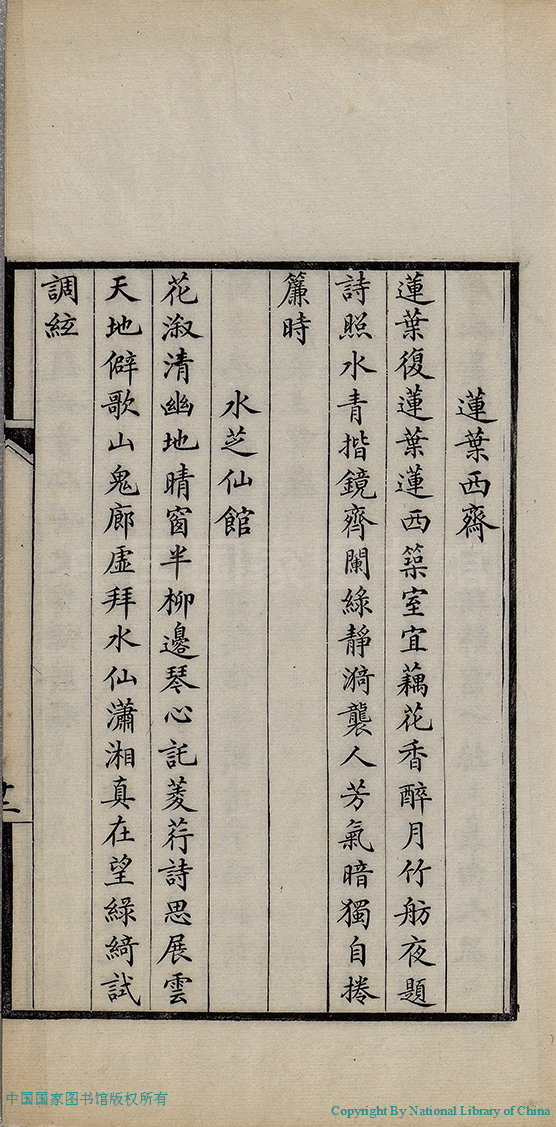 蓮葉西齋
蓮葉復蓮葉蓮西築室宜藕花香醉月竹舫夜題
詩照水青揩鏡齊闌綠靜漪襲人芳氣暗獨自捲
簾時
水芝仙館
花溆清幽地晴窗半柳邊琴心託菱荇詩思展雲
天地僻歌山鬼廊虛拜水仙瀟湘真在望綠綺試
調絃
中国国家图书馆版权所有
Copyright By National Library of China